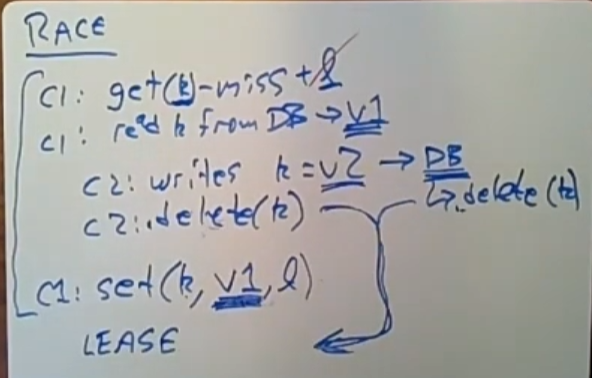 RACE
C1: get(k)-miss + l
C1: read k from DB → v1
C2: writes k = v2 → DB
C2: delete(k) ↳ delete(k)
C1: set(k, v1, l)
LEASE